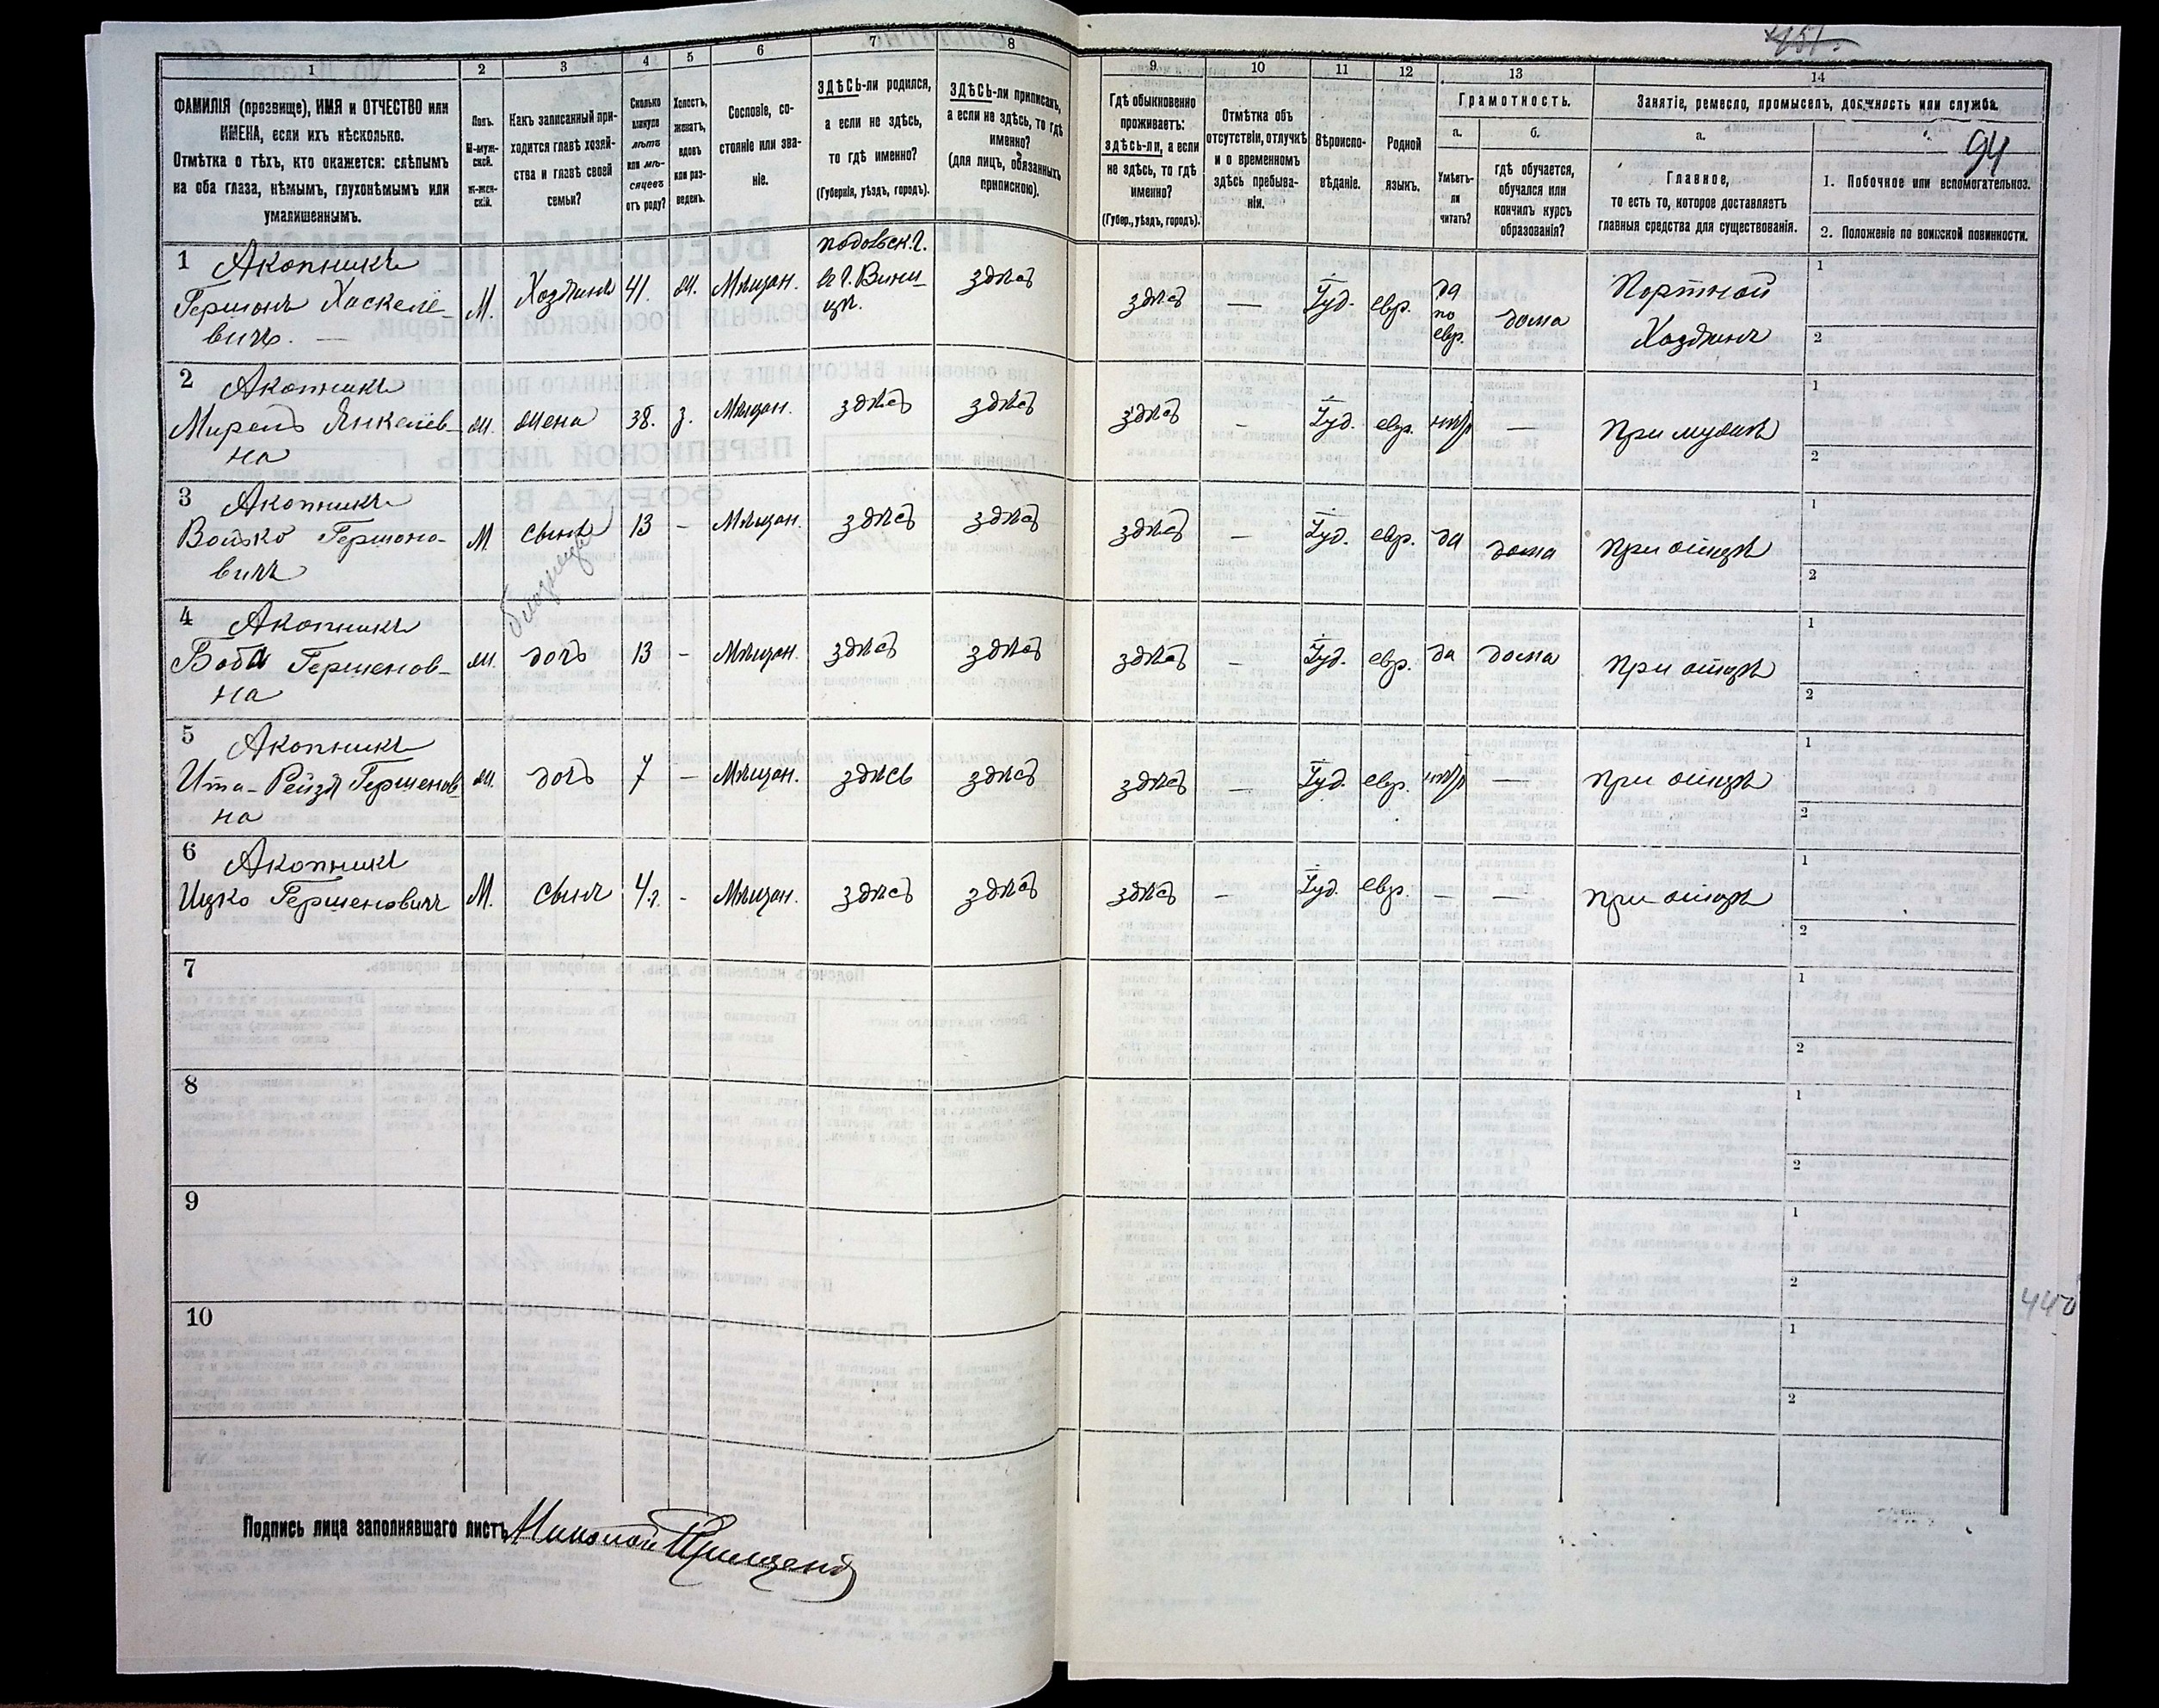 451.
1
2
3
4
5
6
7
8
9
10
11
12
13
14
ФАМИЛІЯ (прозвище), ИМЯ и ОТЧЕСТВО или
ИМЕНА, если ихъ нѣсколько.
Отмѣтка о тѣхъ, кто окажется: слѣпымъ
на оба глаза, нѣмымъ, глухонѣмымъ или
умалишеннымъ.
Полъ.
М-муж-
ской.
ж-жен-
скій.
Какъ записанный при-
ходится главѣ хозяй-
ства и главѣ своей
семьи?
Сколько
минуло
лѣтъ
или мѣ-
сяцевъ
отъ роду?
Холостъ,
женатъ,
вдовъ
или раз-
веденъ.
Сословіе, со-
стояніе или зва-
ніе.
ЗДѢСЬ-ли родился,
а если не здѣсь,
то гдѣ именно?
(Губернія, уѣздъ, городъ).
ЗДѢСЬ-ли приписанъ,
а если не здѣсь, то гдѣ
именно?
(для лицъ, обязанныхъ
припискою).
Гдѣ обыкновенно
проживаетъ:
здѣсь-ли, а если
не здѣсь, то гдѣ
именно?
(Губер., уѣздъ, городъ).
Отмѣтка объ
отсутствіи, отлучкѣ
и о временномъ
здѣсь пребыва-
ніи.
Вѣроиспо-
вѣданіе.
Родной
языкъ.
Грамотность.
а.
б.
Умѣетъ-
ли
читать?
гдѣ обучается,
обучался или
кончилъ курсъ
образованія?
Занятіе, ремесло, промыселъ, должность или служба.
а.
94
Главное,
то есть то, которое доставляетъ
главныя средства для существованія.
1. Побочное или вспомогательное.
2. Положеніе по воинской повинности.
1 Акопникъ
Гершонъ Хаскеле-
вичъ. —
М.
Хозяинъ
41.
ж.
Мѣщан.
подольск. г.
въ г. Вини-
цѣ.
здѣсь
здѣсь
—
Іуд.
евр.
да
по
евр.
дома
Портной
Хозяинъ
1
2
2 Акопникъ
Мирель Янкелев-
на
ж.
жена
38.
з.
Мѣщан.
здѣсь
здѣсь
здѣсь
—
Іуд.
евр.
нѣт
—
При мужѣ
1
2
3 Акопникъ
Волько Гершоно-
вичъ
М.
сынъ
13
-
Мѣщан.
здѣсь
здѣсь
здѣсь
—
Іуд.
евр.
да
дома
При отцѣ
1
2
близнецы
4 Акопникъ
Боба Гершенов-
на
ж.
дочь
13
-
Мѣщан.
здѣсь
здѣсь
здѣсь
—
Іуд.
евр.
да
дома
При отцѣ
1
2
5 Акопникъ
Ита-Рейзя Гершенов
на
ж.
дочь
7
—
Мѣщан.
здѣсь
здѣсь
здѣсь
—
Іуд.
евр.
нѣт
—
При отцѣ
1
2
6 Акопникъ
Ицко Гершеновичъ
М.
сынъ
4 г.
-
Мѣщан.
здѣсь
здѣсь
здѣсь
—
Іуд.
евр.
—
—
При отцѣ
1
2
7
1
2
8
1
2
9
1
2
10
1
2
440
Подпись лица заполнявшаго листъ Николай